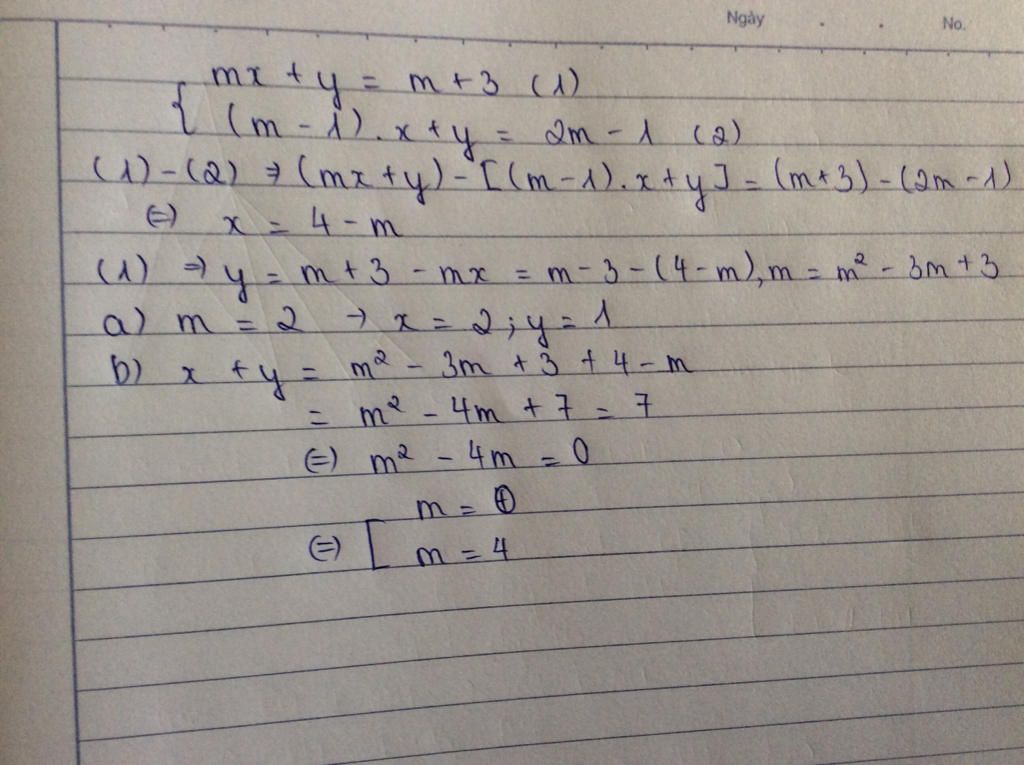 Ngày . . No.
mx + y = m + 3 (1)
{ (m - 1).x + y = 2m - 1 (2)
(1) - (2) ⇒ (mx + y) - [(m - 1).x + y] = (m + 3) - (2m - 1)
(=) x = 4 - m
(1) ⇒ y = m + 3 - mx = m - 3 - (4 - m).m = m² - 3m + 3
a) m = 2 → x = 2 ; y = 1
b) x + y = m² - 3m + 3 + 4 - m
= m² - 4m + 7 = 7
(=) m² - 4m = 0
m = 0
(=) [ m = 4